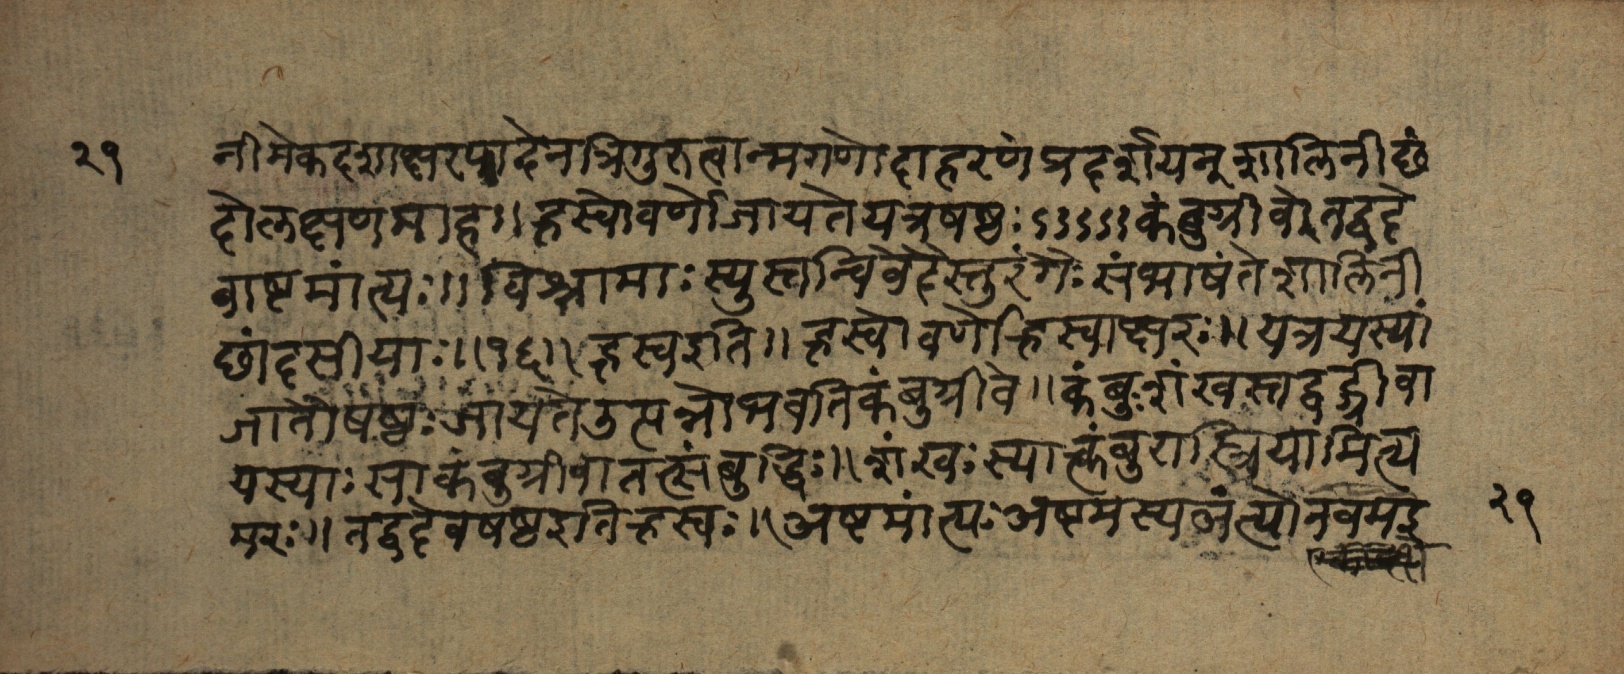 २९
नीमेकदशाक्षरपादेनत्रिगुरुत्वान्मगणोदाहरणंप्रदर्शयन्शालिनीछं
दोलक्षणमाह॥ह्रस्वोवर्णोजायतेयत्रषष्ठःऽऽऽऽऽ।कंबुग्रीवेतद्वदे
वाष्टमांत्यः॥विश्रामाःस्युस्तन्विवेदैस्तुरंगैःसंभाषंतेशालिनी
छांदसीयाः॥१६॥ह्रस्वइति॥ह्रस्वोवर्णोह्रिस्वाक्षरः॥यत्रयस्यां
जातौषष्ठःजायतेउत्पन्नोभवतिकंबुग्रीवे॥कंबुःशंखस्तद्वद्ग्रीवा
यस्याःसाकंबुग्रीवातत्संबुद्धिः॥शंखःस्यात्कंबुरास्त्रियामित्य
मरः॥तद्वदेवषष्ठइतिह्रस्वः॥अष्टमांत्यःअष्टमस्यअंत्योनवमइ
२९